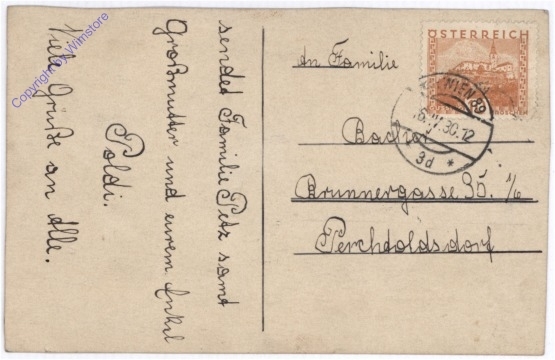 Viele Grüße an Alle.
sendet Familie Petz samt
Großmutter und eurem Enkel
Poldi.
An Familie
Brunnergasse 35. 1/6
Perchtoldsdorf
ÖSTERREICH
WIEN 89
30. 12
3d *
Copyright by Wimstore